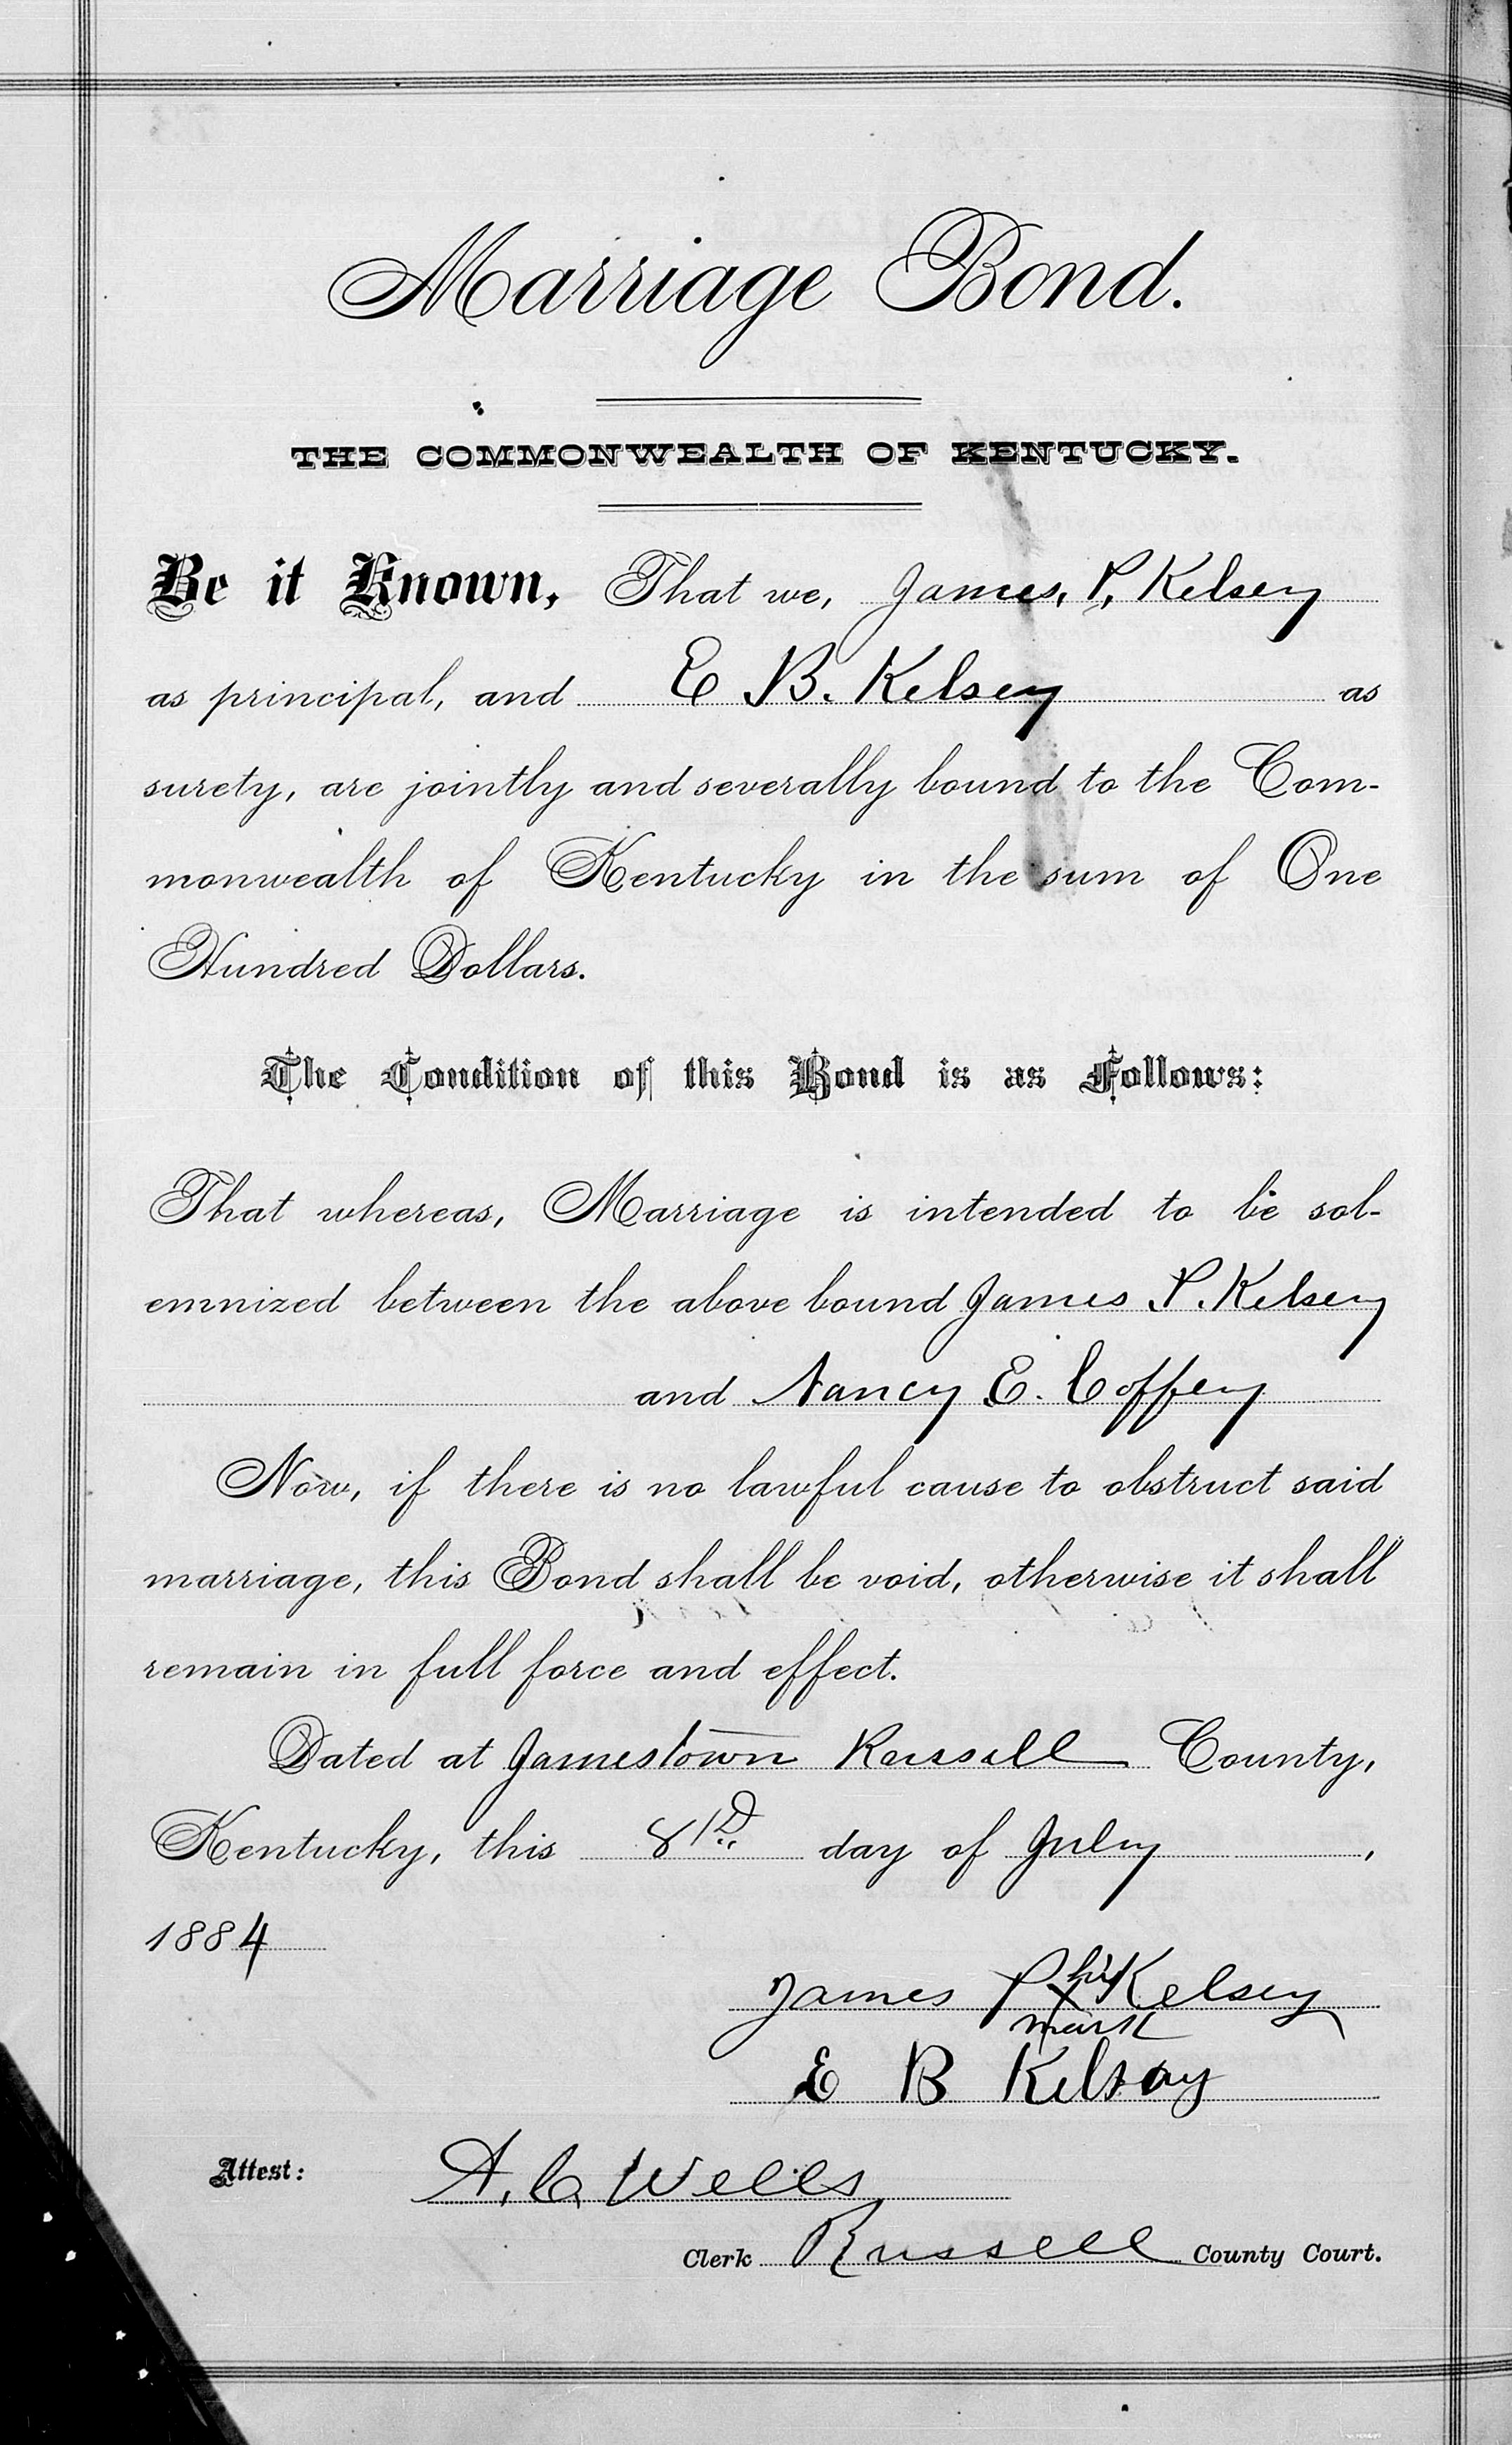 Marriage Bond.
THE COMMONWEALTH OF KENTUCKY.
Be it Known, That we, James, P, Kelsey
as principal, and E B. Kelsey as
surety, are jointly and severally bound to the Com-
monwealth of Kentucky in the sum of One
Hundred Dollars.
The Condition of this Bond is as Follows:
That whereas, Marriage is intended to be sol-
emnized between the above bound James P. Kelsey
and Nancy E. Coffey
Now, if there is no lawful cause to obstruct said
marriage, this Bond shall be void, otherwise it shall
remain in full force and effect.
Dated at Jamestown Russell County,
Kentucky, this 8 day of July,
1884
James P his X mark Kelsey
E B Kelsay
Attest: A. C. Wells
Clerk Russell County Court.